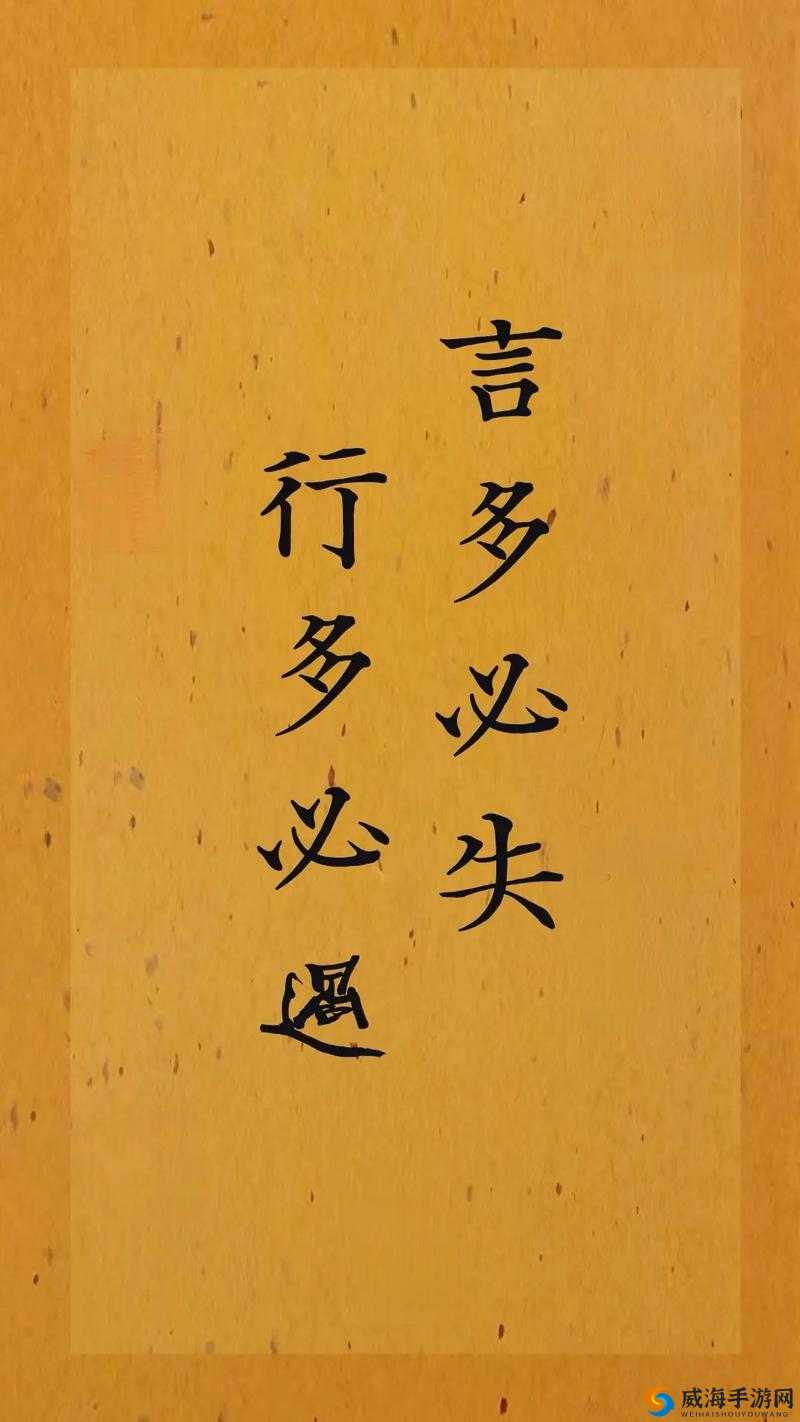 言多必失
行多必過
威海手游网
WEIHAISHOUYOUWANG